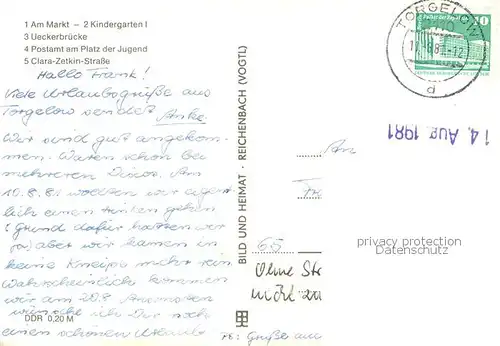 1 Am Markt – 2 Kindergarten I
3 Ueckerbrücke
4 Postamt am Platz der Jugend
5 Clara-Zetkin-Straße
Hallo Frank!
Viele Urlaubsgrüße aus
Torgelow sendet Anke
Wir sind gut angekom-
men. Waren schon bei
mehreren Discos. Am
10.8.81 wollten wir eigent-
lich einen trinken gehen
(Grund dafür hatten wir
ja) aber wir kamen in
keine Kneipe mehr rein.
Wahrscheinlich kommen
wir am 20.8
wünsche ich Dir noch
einen schönen Urlaub
DDR 0,20 M
BILD UND HEIMAT · REICHENBACH (VOGTL)
TORGELOW
10
d
14. Aug. 1981
An
Fr
65
Ohne Str
nicht
PS: Grüße
privacy protection
Datenschutz